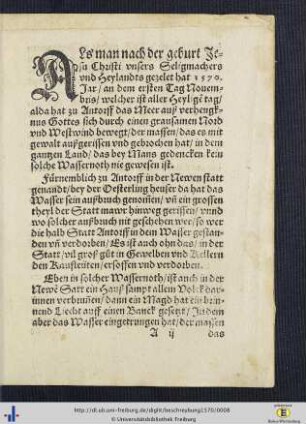 ALs man nach der geburt Je-
su Christi vnsers Seligmachers
vnd Heylandts gezelet hat 1570.
Jar / an dem ersten Tag Nouem-
bris / welcher ist aller Heyligē tag /
alda hat zu Antorff das Meer auß verhengk-
nus Gottes sich durch einen grausamen Nord
vnd Westwind beweget / der massen / das es mit
gewalt außgerissen vnd gebrochen hat / in dem
gantzen Land / das bey Mans gedencken kein
solche Wassernoth nie gewesen ist.
Fürnemblich zu Antorff in der Newen statt
genandt / bey der Oesterling heuser da hat das
Wasser sein außbruch genom̄en / vn̄ ein grossen
theyl der Statt maur hinweg gerissen / vnnd
wo solcher außbruch nit geschehen wer / so wer
die halb Statt Antorff in dem Wasser gestan-
den vn̄ verdorben / Es ist auch ohn das / in der
Statt / vil groß gůt in Gewelben vnd Kellern
den Kaufleuten / ersoffen vnd verdorben.
Eben in solcher Wassernoth / ist auch in der
Newē Statt ein Hauß sampt allem Volck dar-
innen verbrunnen / dann ein Magd hat ein brin-
nend Liecht auff einen Banck gesetzt / Indem
aber das Wasser eingetrungen hat / der massen
A ij das
http://dl.ub.uni-freiburg.de/diglit/beschreybung1570/0008
© Universitätsbibliothek Freiburg